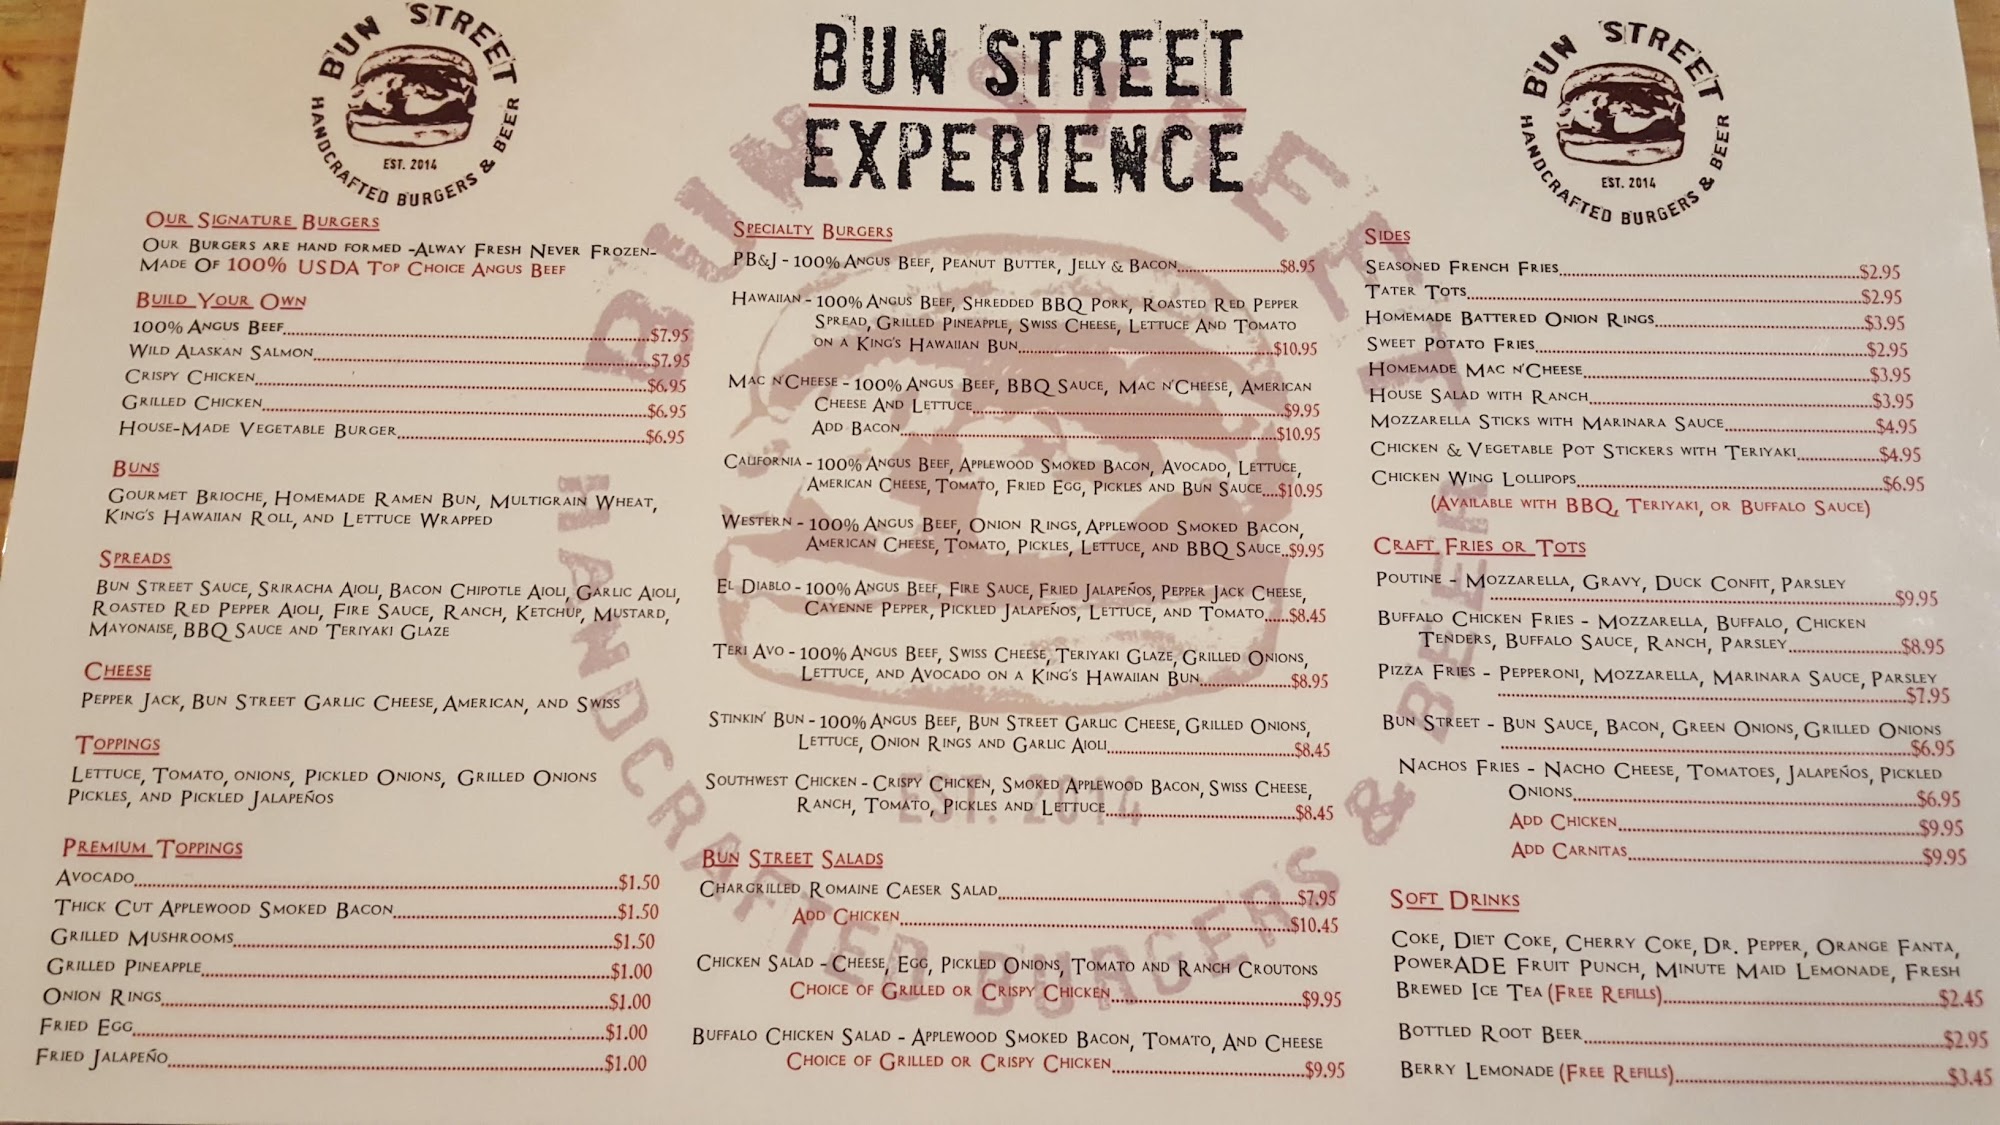 BUN STREET
HANDCRAFTED BURGERS & BEER
EST. 2014
BUN STREET
EXPERIENCE
BUN STREET
HANDCRAFTED BURGERS & BEER
EST. 2014
BUN STREET
HANDCRAFTED BURGERS & BEER
EST. 2014
OUR SIGNATURE BURGERS
OUR BURGERS ARE HAND FORMED -ALWAY FRESH NEVER FROZEN-
MADE OF 100% USDA TOP CHOICE ANGUS BEEF
BUILD YOUR OWN
100% ANGUS BEEF $7.95
WILD ALASKAN SALMON $7.95
CRISPY CHICKEN $6.95
GRILLED CHICKEN $6.95
HOUSE-MADE VEGETABLE BURGER $6.95
BUNS
GOURMET BRIOCHE, HOMEMADE RAMEN BUN, MULTIGRAIN WHEAT,
KING'S HAWAIIAN ROLL, AND LETTUCE WRAPPED
SPREADS
BUN STREET SAUCE, SRIRACHA AIOLI, BACON CHIPOTLE AIOLI, GARLIC AIOLI,
ROASTED RED PEPPER AIOLI, FIRE SAUCE, RANCH, KETCHUP, MUSTARD,
MAYONAISE, BBQ SAUCE AND TERIYAKI GLAZE
CHEESE
PEPPER JACK, BUN STREET GARLIC CHEESE, AMERICAN, AND SWISS
TOPPINGS
LETTUCE, TOMATO, ONIONS, PICKLED ONIONS, GRILLED ONIONS
PICKLES, AND PICKLED JALAPEÑOS
PREMIUM TOPPINGS
AVOCADO $1.50
THICK CUT APPLEWOOD SMOKED BACON $1.50
GRILLED MUSHROOMS $1.50
GRILLED PINEAPPLE $1.00
ONION RINGS $1.00
FRIED EGG $1.00
FRIED JALAPEÑO $1.00
SPECIALTY BURGERS
PB&J - 100% ANGUS BEEF, PEANUT BUTTER, JELLY & BACON $8.95
HAWAIIAN - 100% ANGUS BEEF, SHREDDED BBQ PORK, ROASTED RED PEPPER
SPREAD, GRILLED PINEAPPLE, SWISS CHEESE, LETTUCE AND TOMATO
ON A KING'S HAWAIIAN BUN $10.95
MAC N'CHEESE - 100% ANGUS BEEF, BBQ SAUCE, MAC N'CHEESE, AMERICAN
CHEESE AND LETTUCE $9.95
ADD BACON $10.95
CALIFORNIA - 100% ANGUS BEEF, APPLEWOOD SMOKED BACON, AVOCADO, LETTUCE,
AMERICAN CHEESE, TOMATO, FRIED EGG, PICKLES AND BUN SAUCE $10.95
WESTERN - 100% ANGUS BEEF, ONION RINGS, APPLEWOOD SMOKED BACON,
AMERICAN CHEESE, TOMATO, PICKLES, LETTUCE, AND BBQ SAUCE $9.95
EL DIABLO - 100% ANGUS BEEF, FIRE SAUCE, FRIED JALAPEÑOS, PEPPER JACK CHEESE,
CAYENNE PEPPER, PICKLED JALAPEÑOS, LETTUCE, AND TOMATO $8.45
TERI AVO - 100% ANGUS BEEF, SWISS CHEESE, TERIYAKI GLAZE, GRILLED ONIONS,
LETTUCE, AND AVOCADO ON A KING'S HAWAIIAN BUN $8.95
STINKIN' BUN - 100% ANGUS BEEF, BUN STREET GARLIC CHEESE, GRILLED ONIONS,
LETTUCE, ONION RINGS AND GARLIC AIOLI $8.45
SOUTHWEST CHICKEN - CRISPY CHICKEN, SMOKED APPLEWOOD BACON, SWISS CHEESE,
RANCH, TOMATO, PICKLES AND LETTUCE $8.45
BUN STREET SALADS
CHARGRILLED ROMAINE CAESER SALAD $7.95
ADD CHICKEN $10.45
CHICKEN SALAD - CHEESE, EGG, PICKLED ONIONS, TOMATO AND RANCH CROUTONS
CHOICE OF GRILLED OR CRISPY CHICKEN $9.95
BUFFALO CHICKEN SALAD - APPLEWOOD SMOKED BACON, TOMATO, AND CHEESE
CHOICE OF GRILLED OR CRISPY CHICKEN $9.95
SIDES
SEASONED FRENCH FRIES $2.95
TATER TOTS $2.95
HOMEMADE BATTERED ONION RINGS $3.95
SWEET POTATO FRIES $2.95
HOMEMADE MAC N'CHEESE $3.95
HOUSE SALAD WITH RANCH $3.95
MOZZARELLA STICKS WITH MARINARA SAUCE $4.95
CHICKEN & VEGETABLE POT STICKERS WITH TERIYAKI $4.95
CHICKEN WING LOLLIPOPS $6.95
(AVAILABLE WITH BBQ, TERIYAKI, OR BUFFALO SAUCE)
CRAFT FRIES OR TOTS
POUTINE - MOZZARELLA, GRAVY, DUCK CONFIT, PARSLEY
$9.95
BUFFALO CHICKEN FRIES - MOZZARELLA, BUFFALO, CHICKEN
TENDERS, BUFFALO SAUCE, RANCH, PARSLEY $8.95
PIZZA FRIES - PEPPERONI, MOZZARELLA, MARINARA SAUCE, PARSLEY
$7.95
BUN STREET - BUN SAUCE, BACON, GREEN ONIONS, GRILLED ONIONS
$6.95
NACHOS FRIES - NACHO CHEESE, TOMATOES, JALAPEÑOS, PICKLED
ONIONS $6.95
ADD CHICKEN $9.95
ADD CARNITAS $9.95
SOFT DRINKS
COKE, DIET COKE, CHERRY COKE, DR. PEPPER, ORANGE FANTA,
POWERADE FRUIT PUNCH, MINUTE MAID LEMONADE, FRESH
BREWED ICE TEA (FREE REFILLS) $2.45
BOTTLED ROOT BEER $2.95
BERRY LEMONADE (FREE REFILLS) $3.45